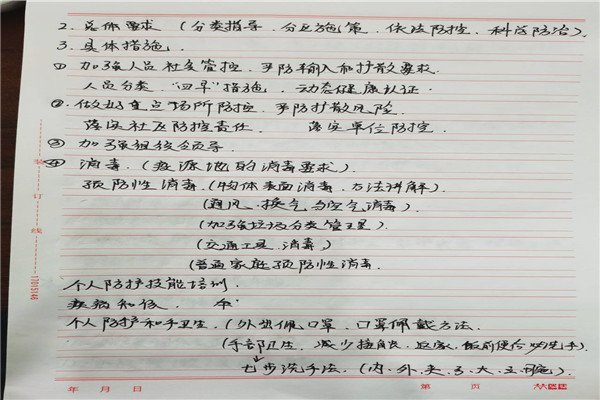 2. 总体要求（分类指导、分区施策、依法防控、科学防治）.
3. 具体措施.
① 加强人员社会管控. 予防输入和扩散要求.
人员分类. "四早"措施. 动态健康认证.
②. 做好重点场所防控. 予防扩散风险.
落实社区防控责任. 落实单位防控.
③ 加强组织领导.
④ 消毒.（疫源地的消毒要求）.
预防性消毒.（物体表面消毒. 方法讲解）.
（通风. 换气与空气消毒）.
（加强垃圾分类管理）.
（交通工具. 消毒）
（普通家庭预防性消毒.
个人防护技能培训.
疾病知识.
个人防护和手卫生.（外出佩口罩. 口罩佩戴方法.
（手部卫生. 减少接触. 返家. 饭前便后 洗手）.
七步洗手法.（内、外、夹、弓、大、立、腕）.
装
订
线
17015146
年 月 日
第 页